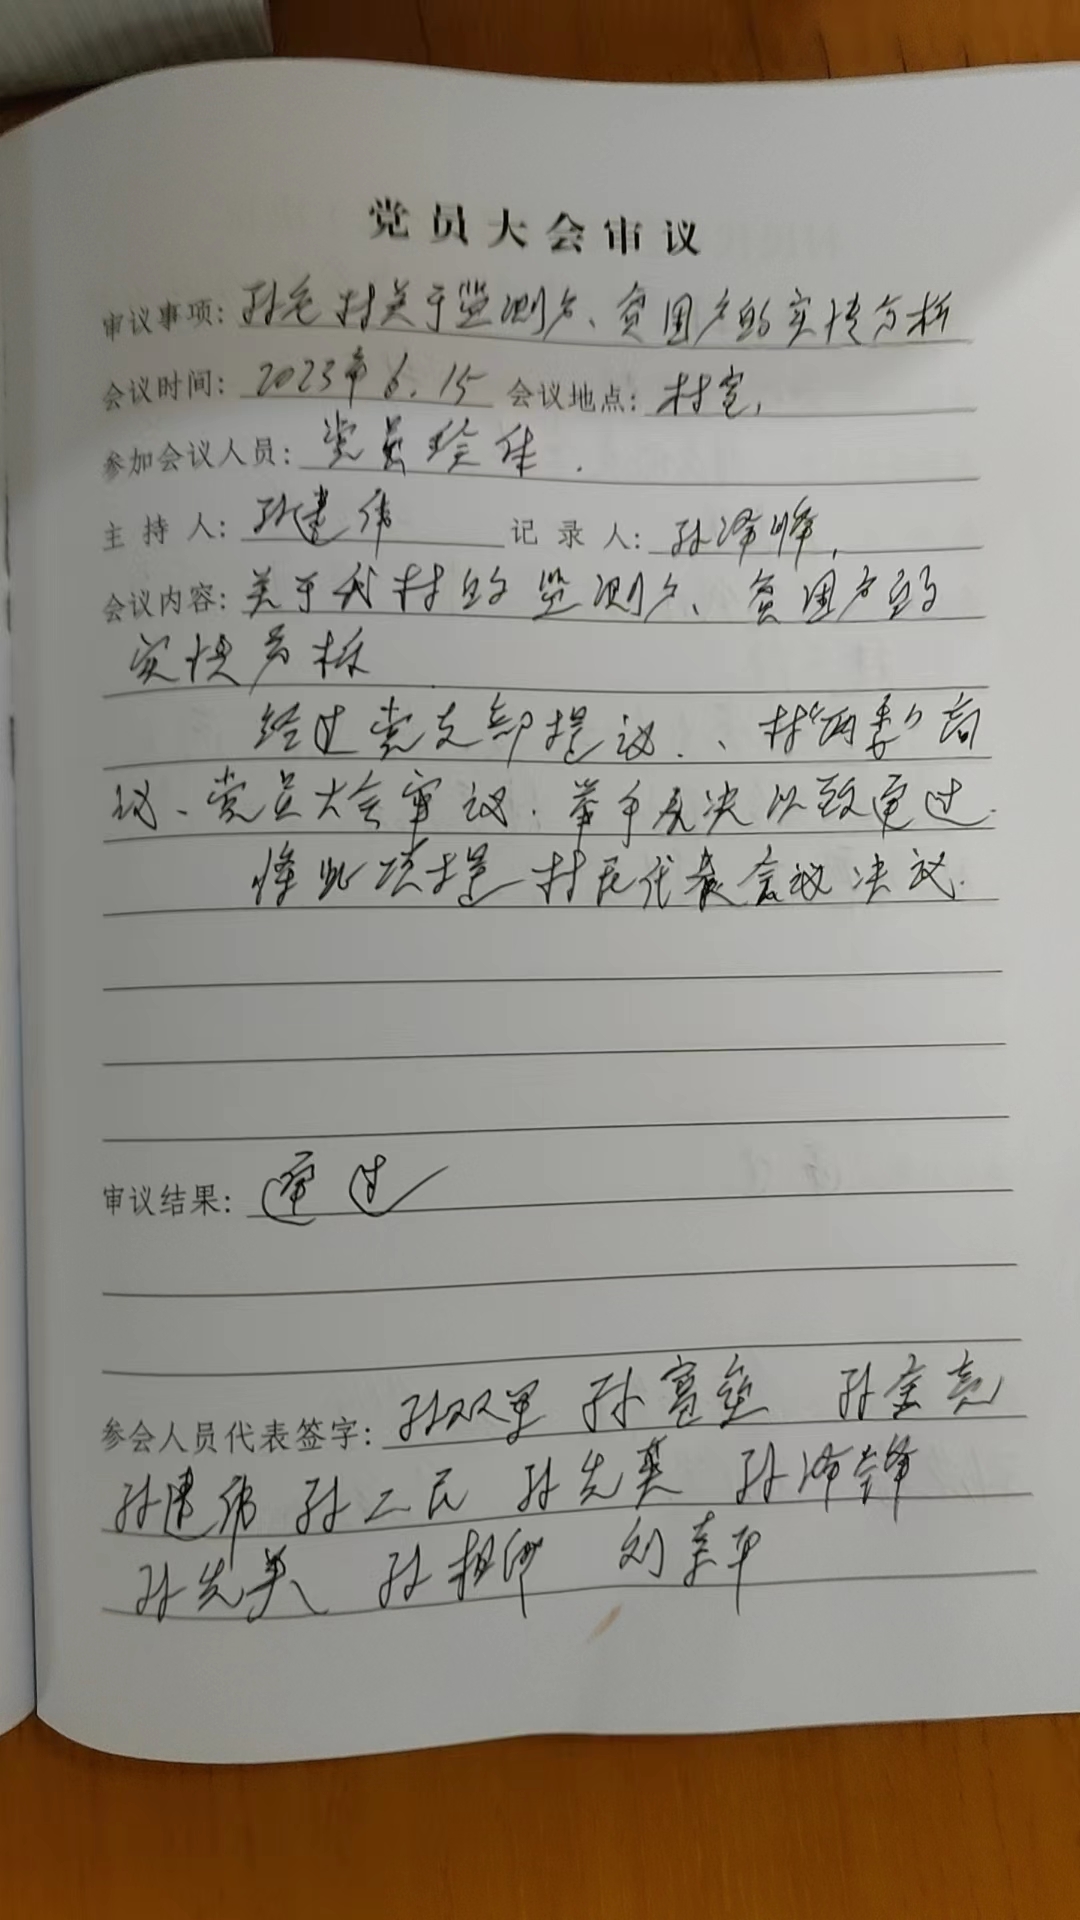 党员大会审议
审议事项：孙老村关于监测户、贫困户的实情分析
会议时间：2023年6.15 会议地点：村室，
参加会议人员：党员全体．
主持人：孙建伟 记录人：孙泽峰，
会议内容：关于我村的监测户、贫困户的
实情分析
经过党支部提议．、村“两委”商
议、党员大会审议．举手表决以致通过．
将此项提村民代表会议决议．
审议结果：通过
参会人员代表签字：孙双军 孙富 孙金亮
孙建伟 孙二民 孙先英 孙泽锋
孙先美 孙相 刘平